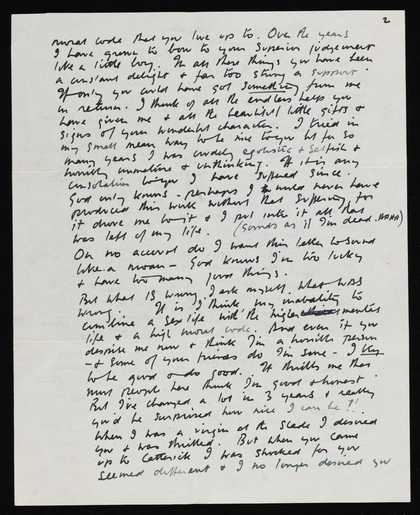 2
moral code that you live up to. Over the years
I have grown to bow to your superior judgement
like a little boy. In all these things you have been
a constant delight & far too strong a support.
If only you could have got something from me
in return. I think of all the endless help you
have given me & all the beautiful little gifts &
signs of your wonderful character. I tried in
my small mean way to be nice to you but for so
many years I was crudely egotistic & selfish &
horribly immature & unthinking. If it is any
consolation to you I have suffered since.
God only knows – perhaps I would never have
produced this work without that suffering for
it drove me to it & I put into it all that
was left of my life. (Sounds as if I'm dead. HAHA)
On no account do I want this letter to sound
like a moan – God knows I'm too lucky
& have too many good things.
But what IS wrong I ask myself. What WAS
wrong. It is I think my inability to
combine a sex life with the higher mental
life & a high moral code. And even if you
despise me now & think I'm a horrible person
– & some of your friends do I'm sure – I try
to be good & do good. It thrills me that
most people here think I'm good & honest.
But I've changed a lot in 3 years & really
you'd be surprised how nice I can be!!
When I was a virgin at the Slade I desired
you & was thrilled. But when you came
up to Catterick I was shocked for you
seemed different & I no longer desired you